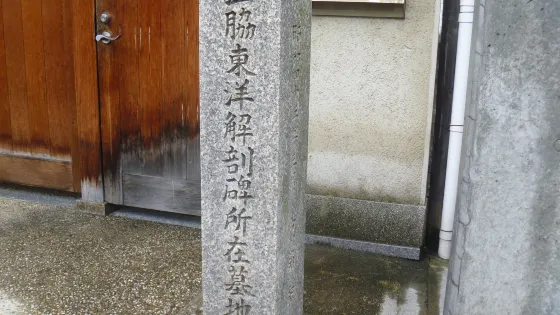 脇東洋解剖碑所在墓地